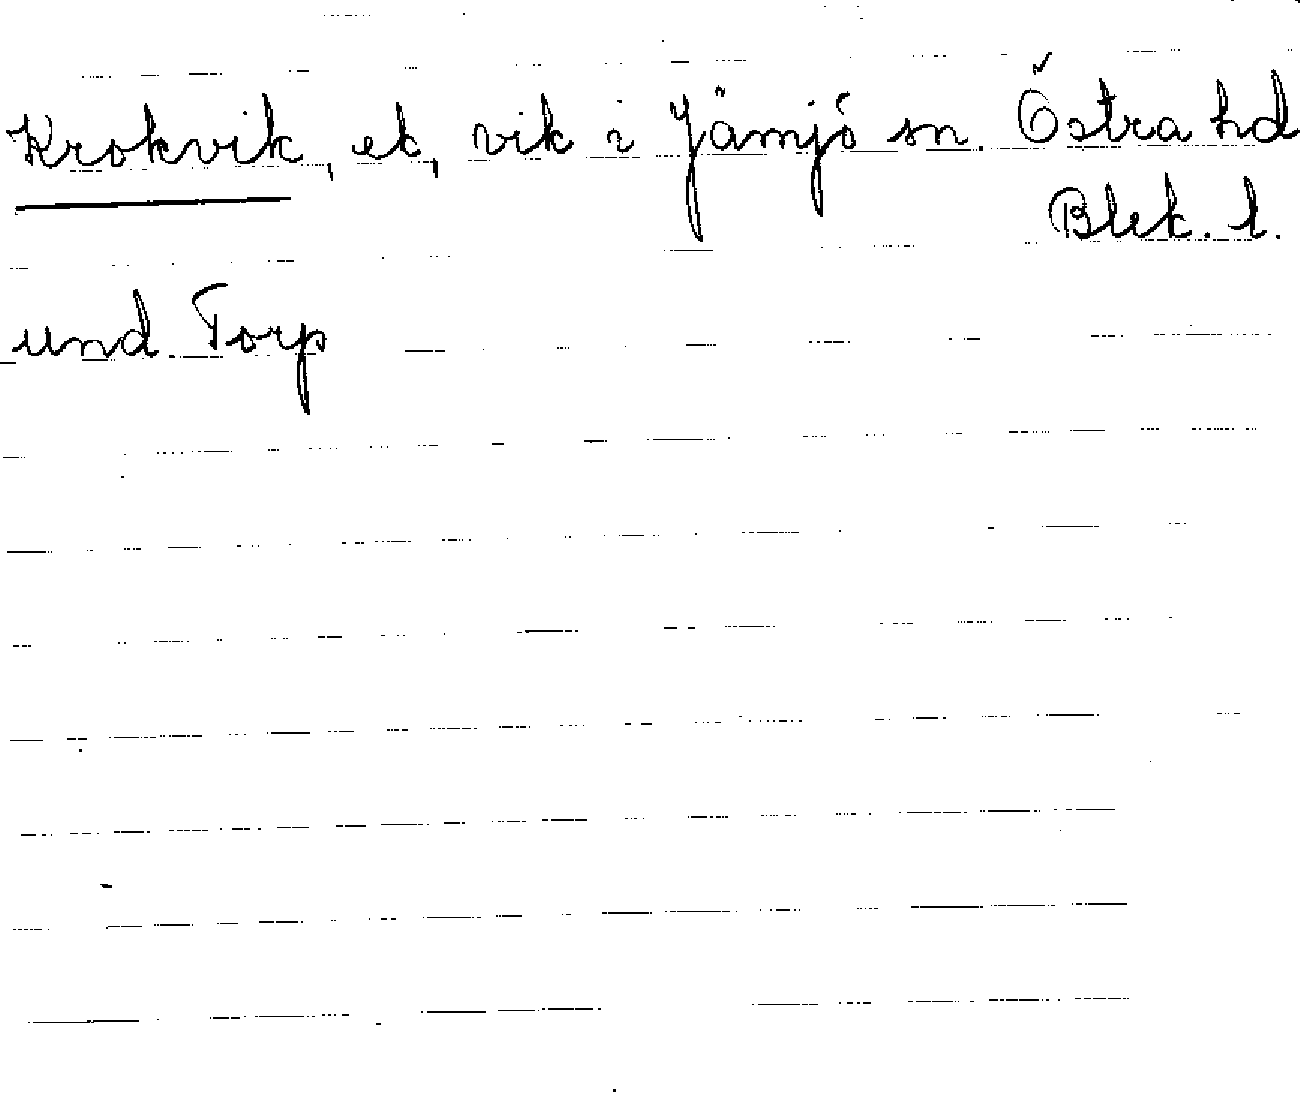 Krokvik, ek, vik i Jämjö sn. Östra hd
Blek. l.
und Torp